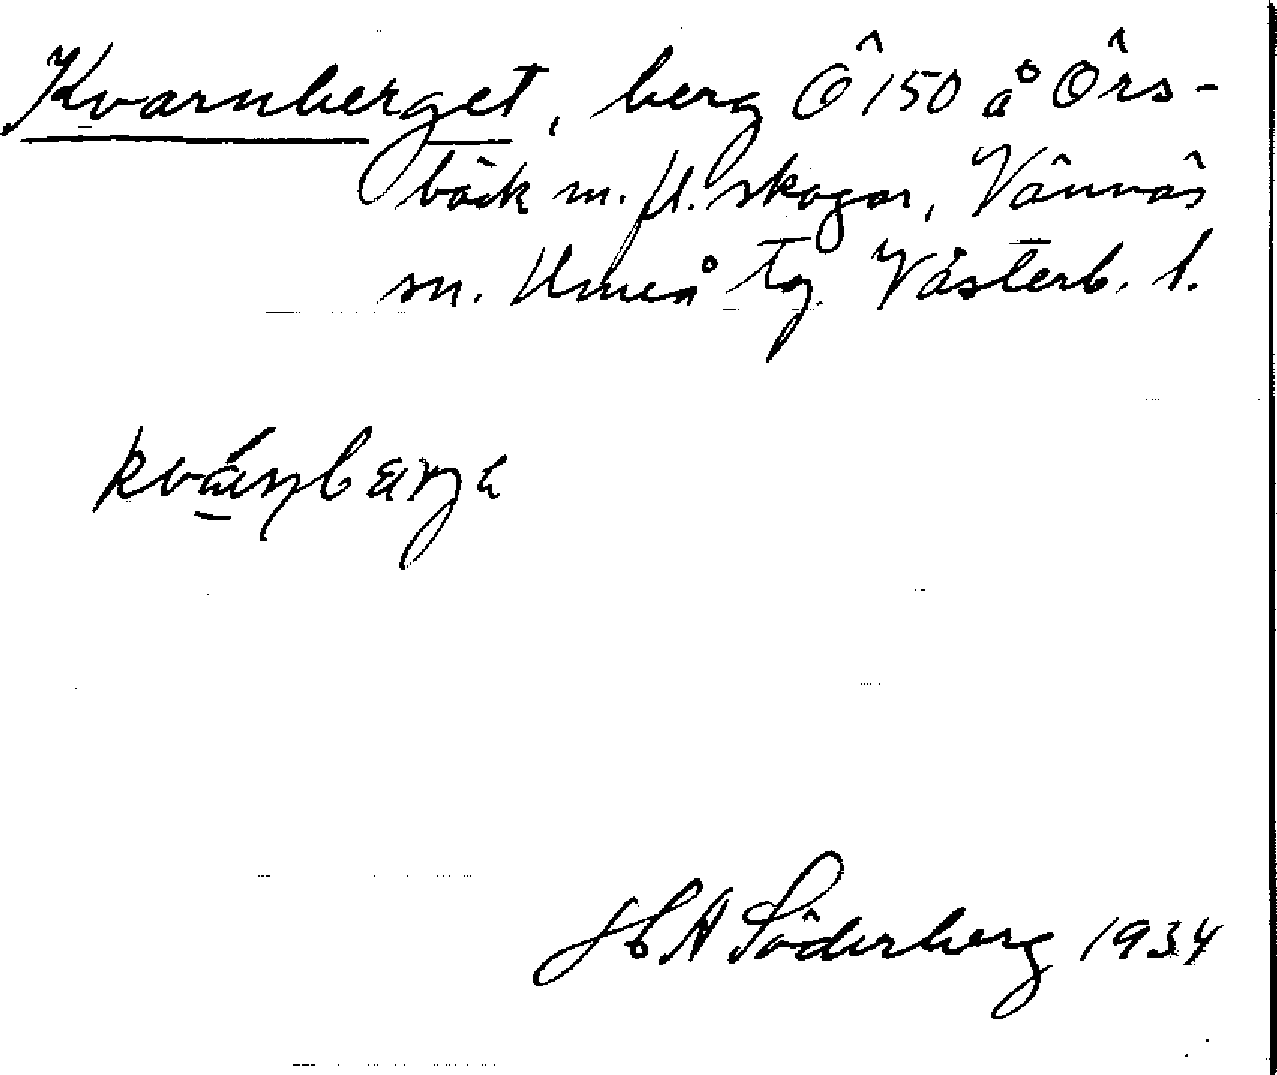 Kvarnberget, berg Ö 150 å Örs-
bäck m. fl. skogar, Vännäs
sn. Umeå tg. Västerb. l.
H A Söderberg 1934